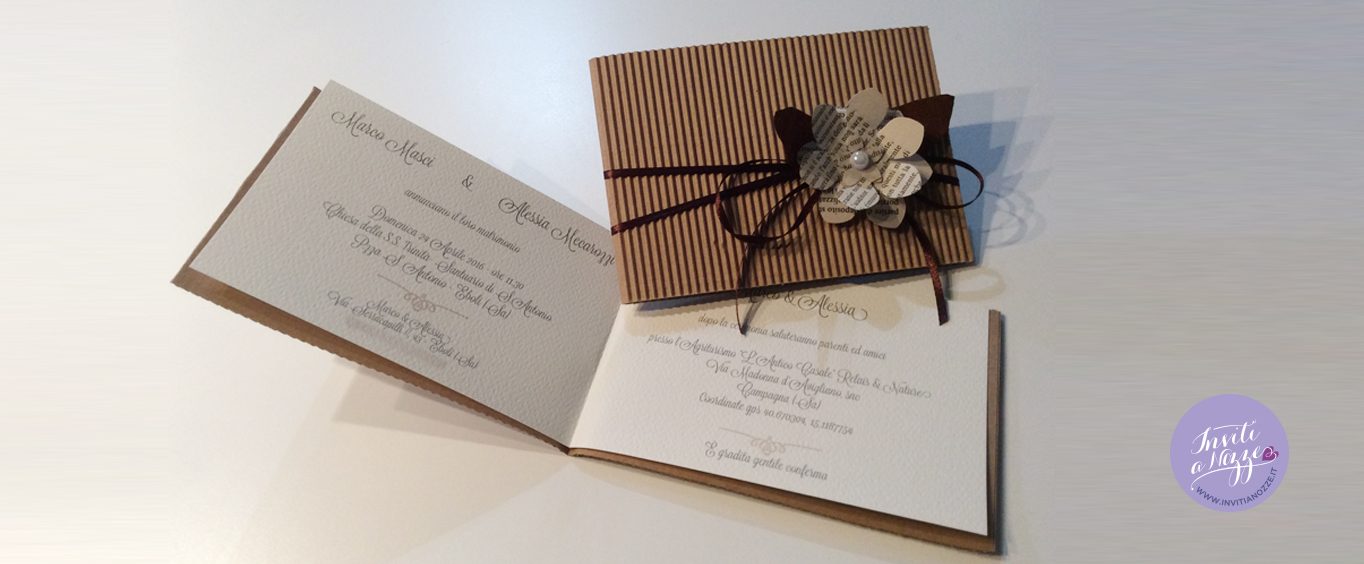 Marco Masci
&
Alessia Mecarozzi
annunciano il loro matrimonio
Domenica 24 Aprile 2016 - ore 11.30
Chiesa della S.S. Trinità - Santuario di S. Antonio
P.zza S. Antonio - Eboli (Sa)
Marco & Alessia
Via Serracapilli, 45 - Eboli (Sa)
Marco & Alessia
dopo la cerimonia saluteranno parenti ed amici
presso l'Agriturismo "L'Antico Casale" Relais & Nature
Via Madonna d'Avigliano snc
Campagna (Sa)
Coordinate gps 40.670304, 15.1187754
È gradita gentile conferma
Inviti
a Nozze
WWW.INVITIANOZZE.IT